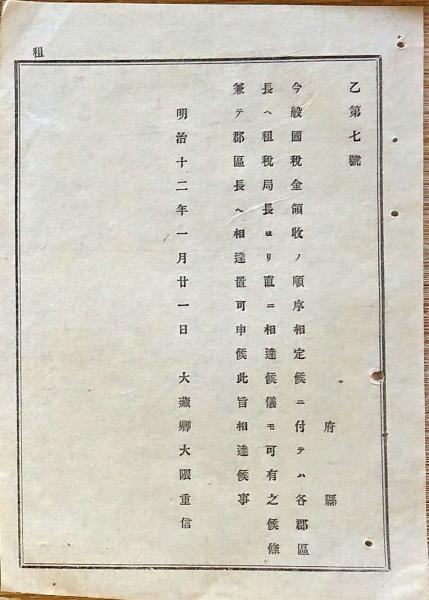 乙第七號
府縣
今般國稅金領收ノ順序相定候ニ付テハ各郡區
長ヘ租稅局長ヨリ直ニ相達候儀モ可有之候條
兼テ郡區長ヘ相達置可申候此旨相達候事
明治十二年一月廿一日 大藏卿大隈重信
租